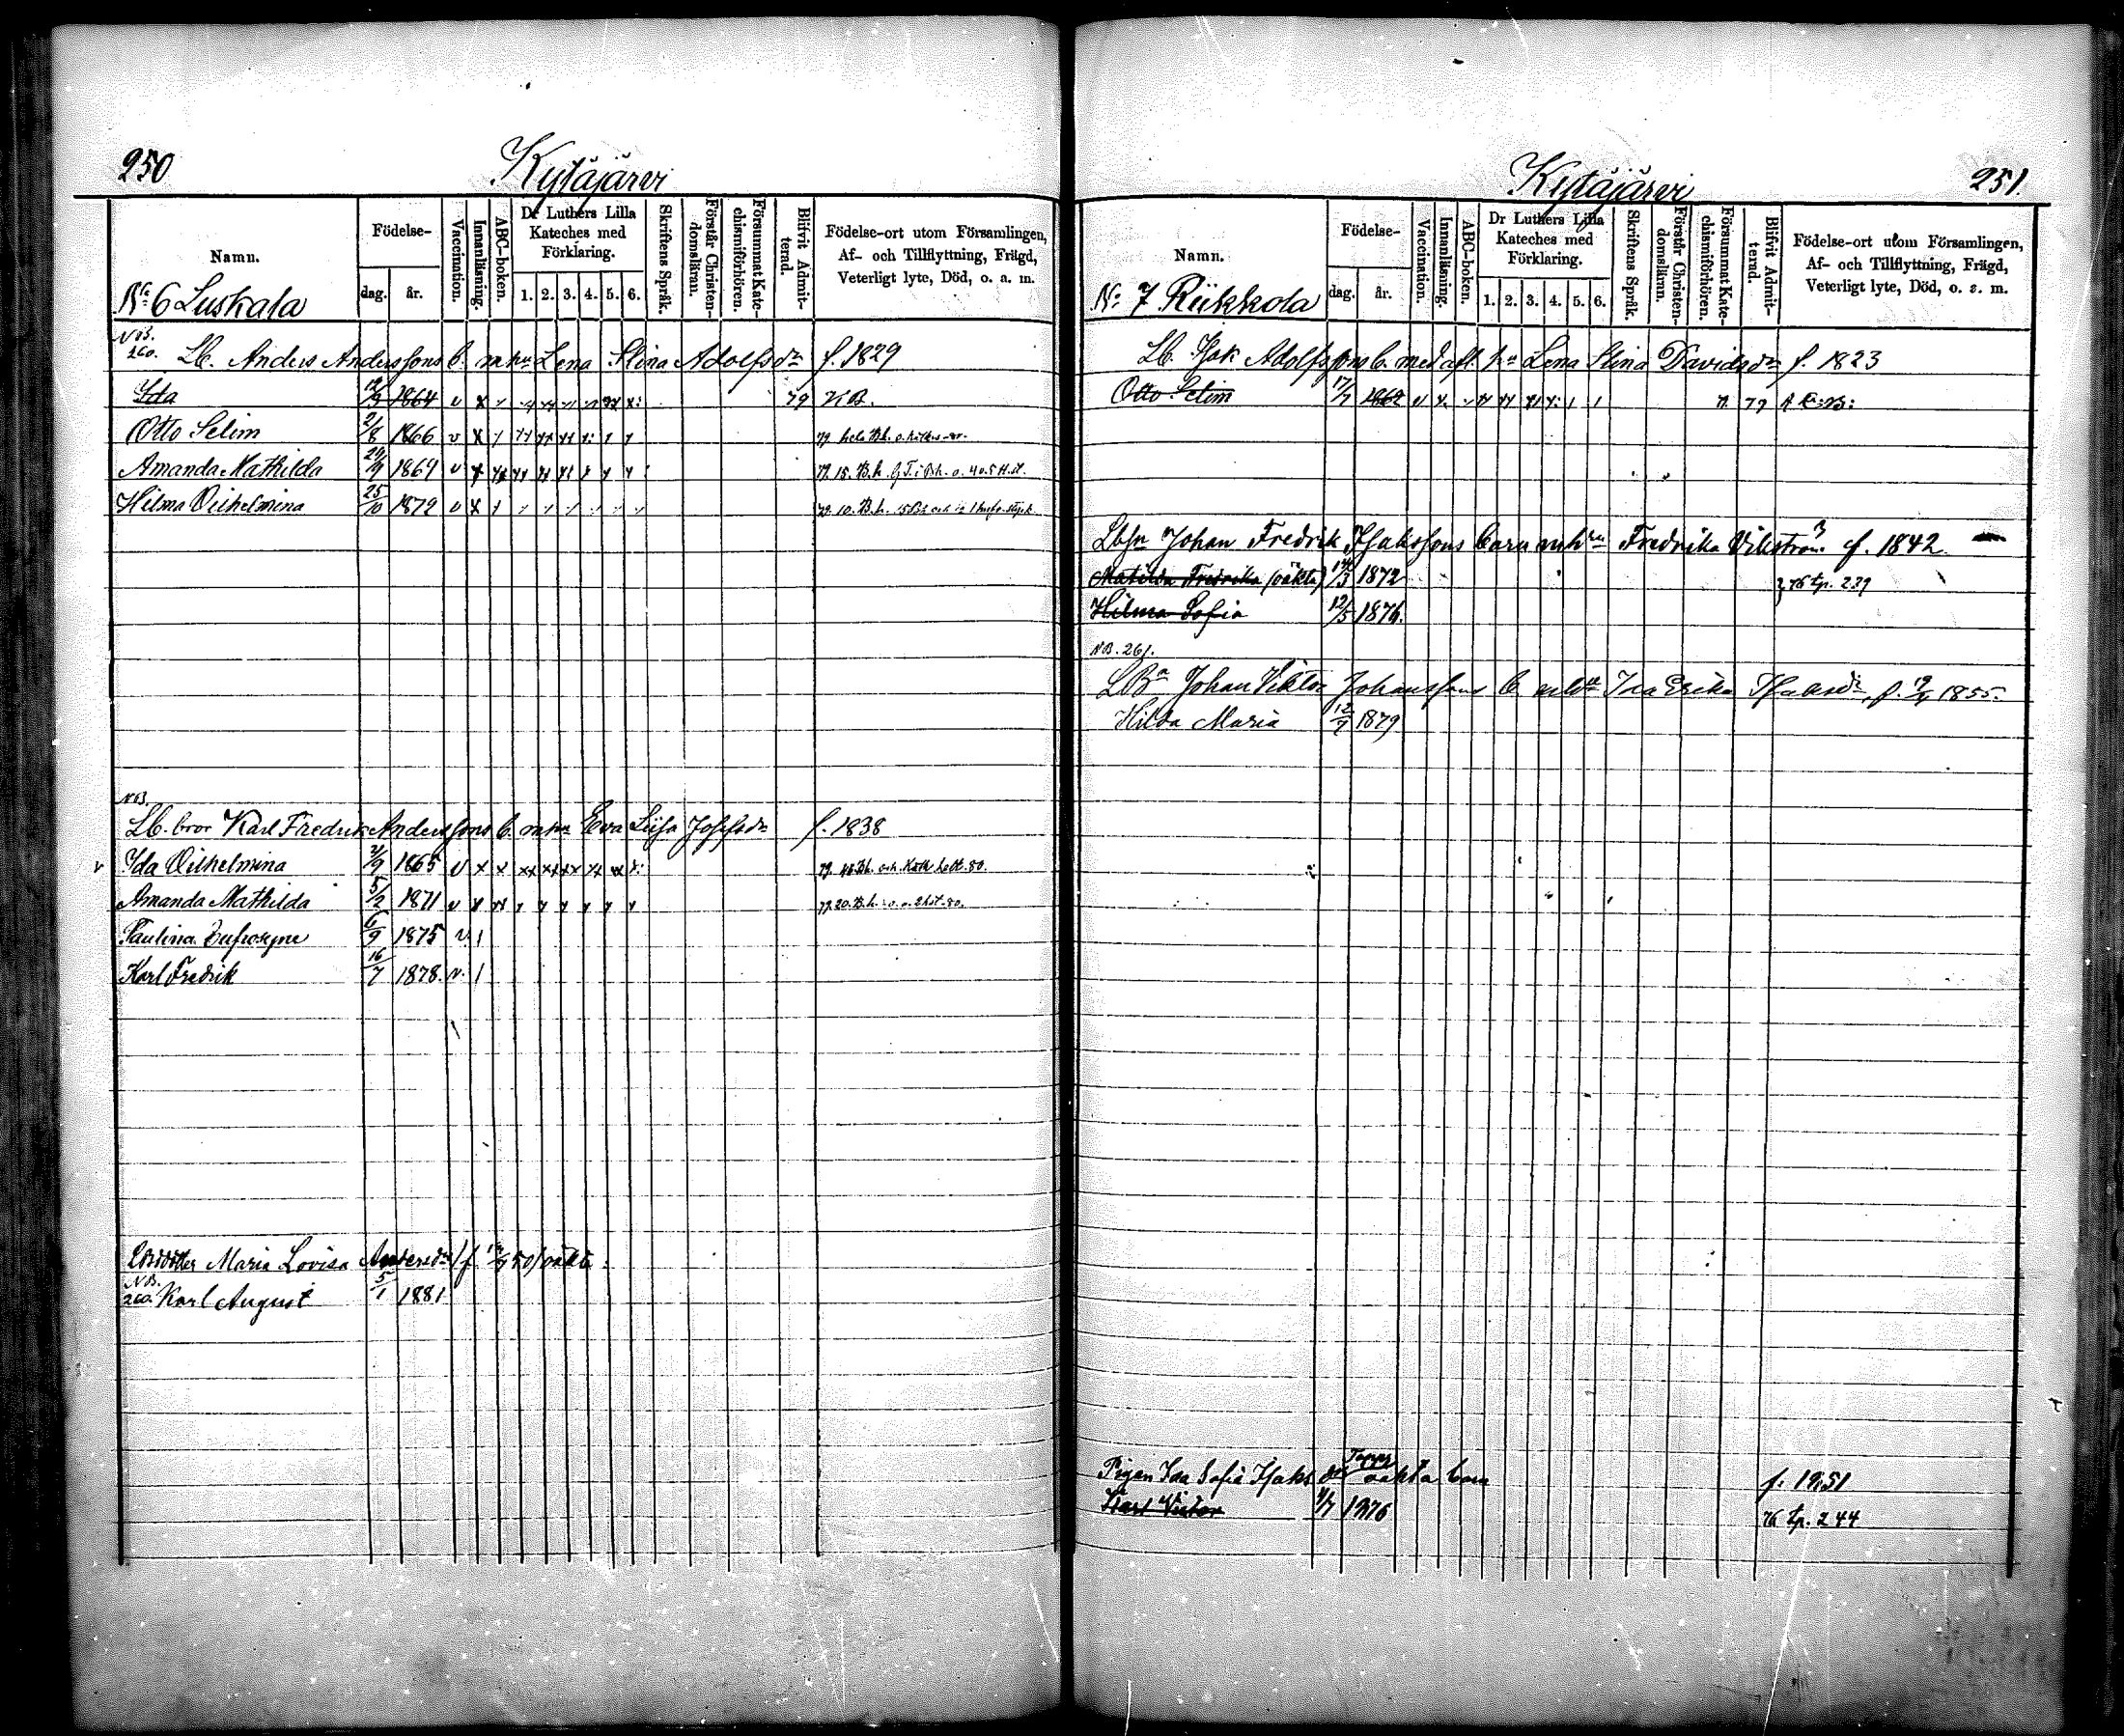 250
Kytäjärvi
Namn.
Födelse-
dag.
år.
Vaccination.
Innanläsning.
ABC-boken.
Dr Luthers Lilla
Kateches med
Förklaring.
1. 2. 3. 4. 5. 6.
Skriftens Språk.
Förstår Christen-
domsläran.
Försummat Kate-
chismiförhören.
Blifvit Admit-
terad.
Födelse-ort utom Församlingen,
Af- och Tillflyttning, Frägd,
Veterligt lyte, Död, o. a. m.
No 6 Luskala
NB.
260. Lb. Anders Anderssons b. m hu Lena Stina Adolfsdr f. 1829
Ida 12/9 1864 v x 79 KB.
Otto Selim 2/8 1866 v x
Amanda Mathilda 29/9 1869 v x
Hilma Vilhelmina 25/10 1872 v x
NB.
Lb. bror Karl Fredrik Anderssons b. m hu Eva Lisa Josefsdr f. 1838
v Ida Vilhelmina 2/9 1865 v x x
Amanda Mathilda 5/2 1871 v x
Paulina Eufrosyne 6/9 1875 v. /
Karl Fredrik 16/7 1878. v. /
Maria Lovisa Andersdr
NB.
260 Karl August 5/1 1881
Kytäjärvi
251.
Namn.
Födelse-
dag.
år.
Vaccination.
Innanläsning.
ABC-boken.
Dr Luthers Lilla
Kateches med
Förklaring.
1. 2. 3. 4. 5. 6.
Skriftens Språk.
Förstår Christen-
domsläran.
Försummat Kate-
chismiförhören.
Blifvit Admit-
terad.
Födelse-ort utom Församlingen,
Af- och Tillflyttning, Frägd,
Veterligt lyte, Död, o. s. m.
No 7 Riikkola
Lb. Isak Adolfssons b. med afl. hu Lena Stina Davidsdr f. 1823
Otto Selim 17/7 1862 79
Johan Fredrik Isakssons barn m hu Fredrika Vikström f. 1842
Matilda Fredrika (oäkta) 14/3 1872 76 tp. 239
Hilma Sofia 12/5 1876.
NB. 261.
Johan Viktor Johanssons b. m hu Ida Erika Isaksdr f. 1855.
Hilda Maria 12/7 1879
Pigan Ida Sofia Isaksdr Tapper oäkta barn f. 1851
Karl Victor 1876 76 tp. 244